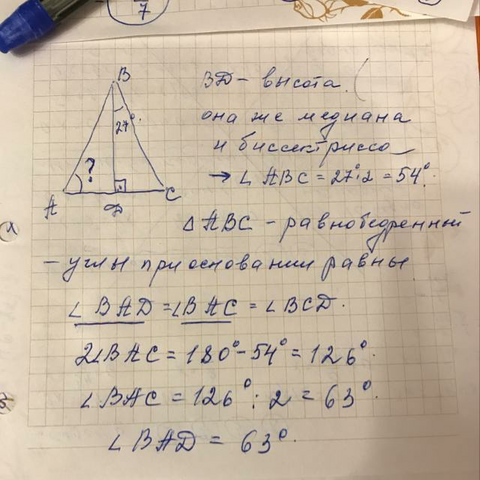 7
B
27°
?
A
D
C
BD - высота.
она же медиана
и биссектриса
→ ∠ABC = 27°·2 = 54°.
△ABC - равнобедренный
- углы при основании равны
∠BAD = ∠BAC = ∠BCD.
2∠BAC = 180° - 54° = 126°.
∠BAC = 126° : 2 = 63°
∠BAD = 63°.